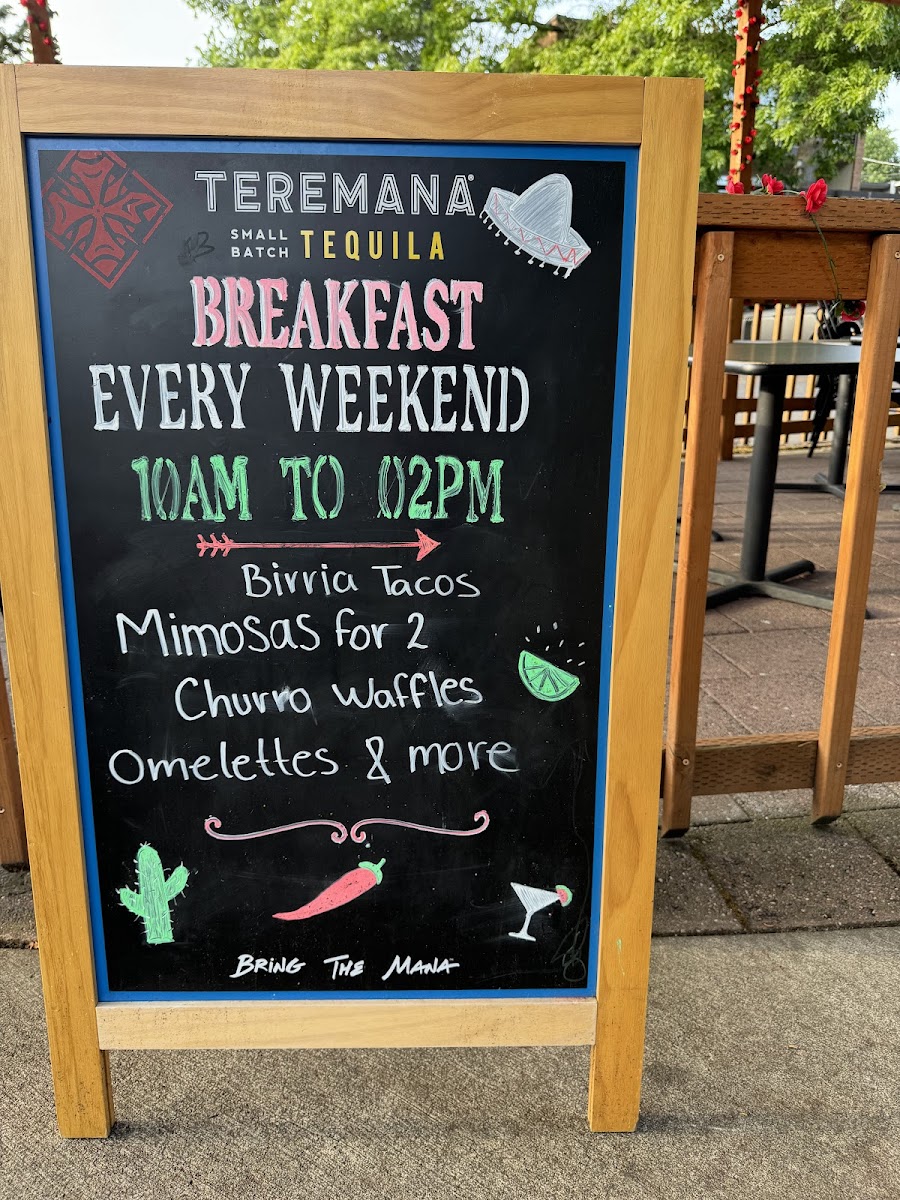 TEREMANA®
SMALL BATCH TEQUILA
BREAKFAST
EVERY WEEKEND
10AM TO 02PM
Birria Tacos
Mimosas for 2
Churro Waffles
Omelettes & more
BRING THE MANA